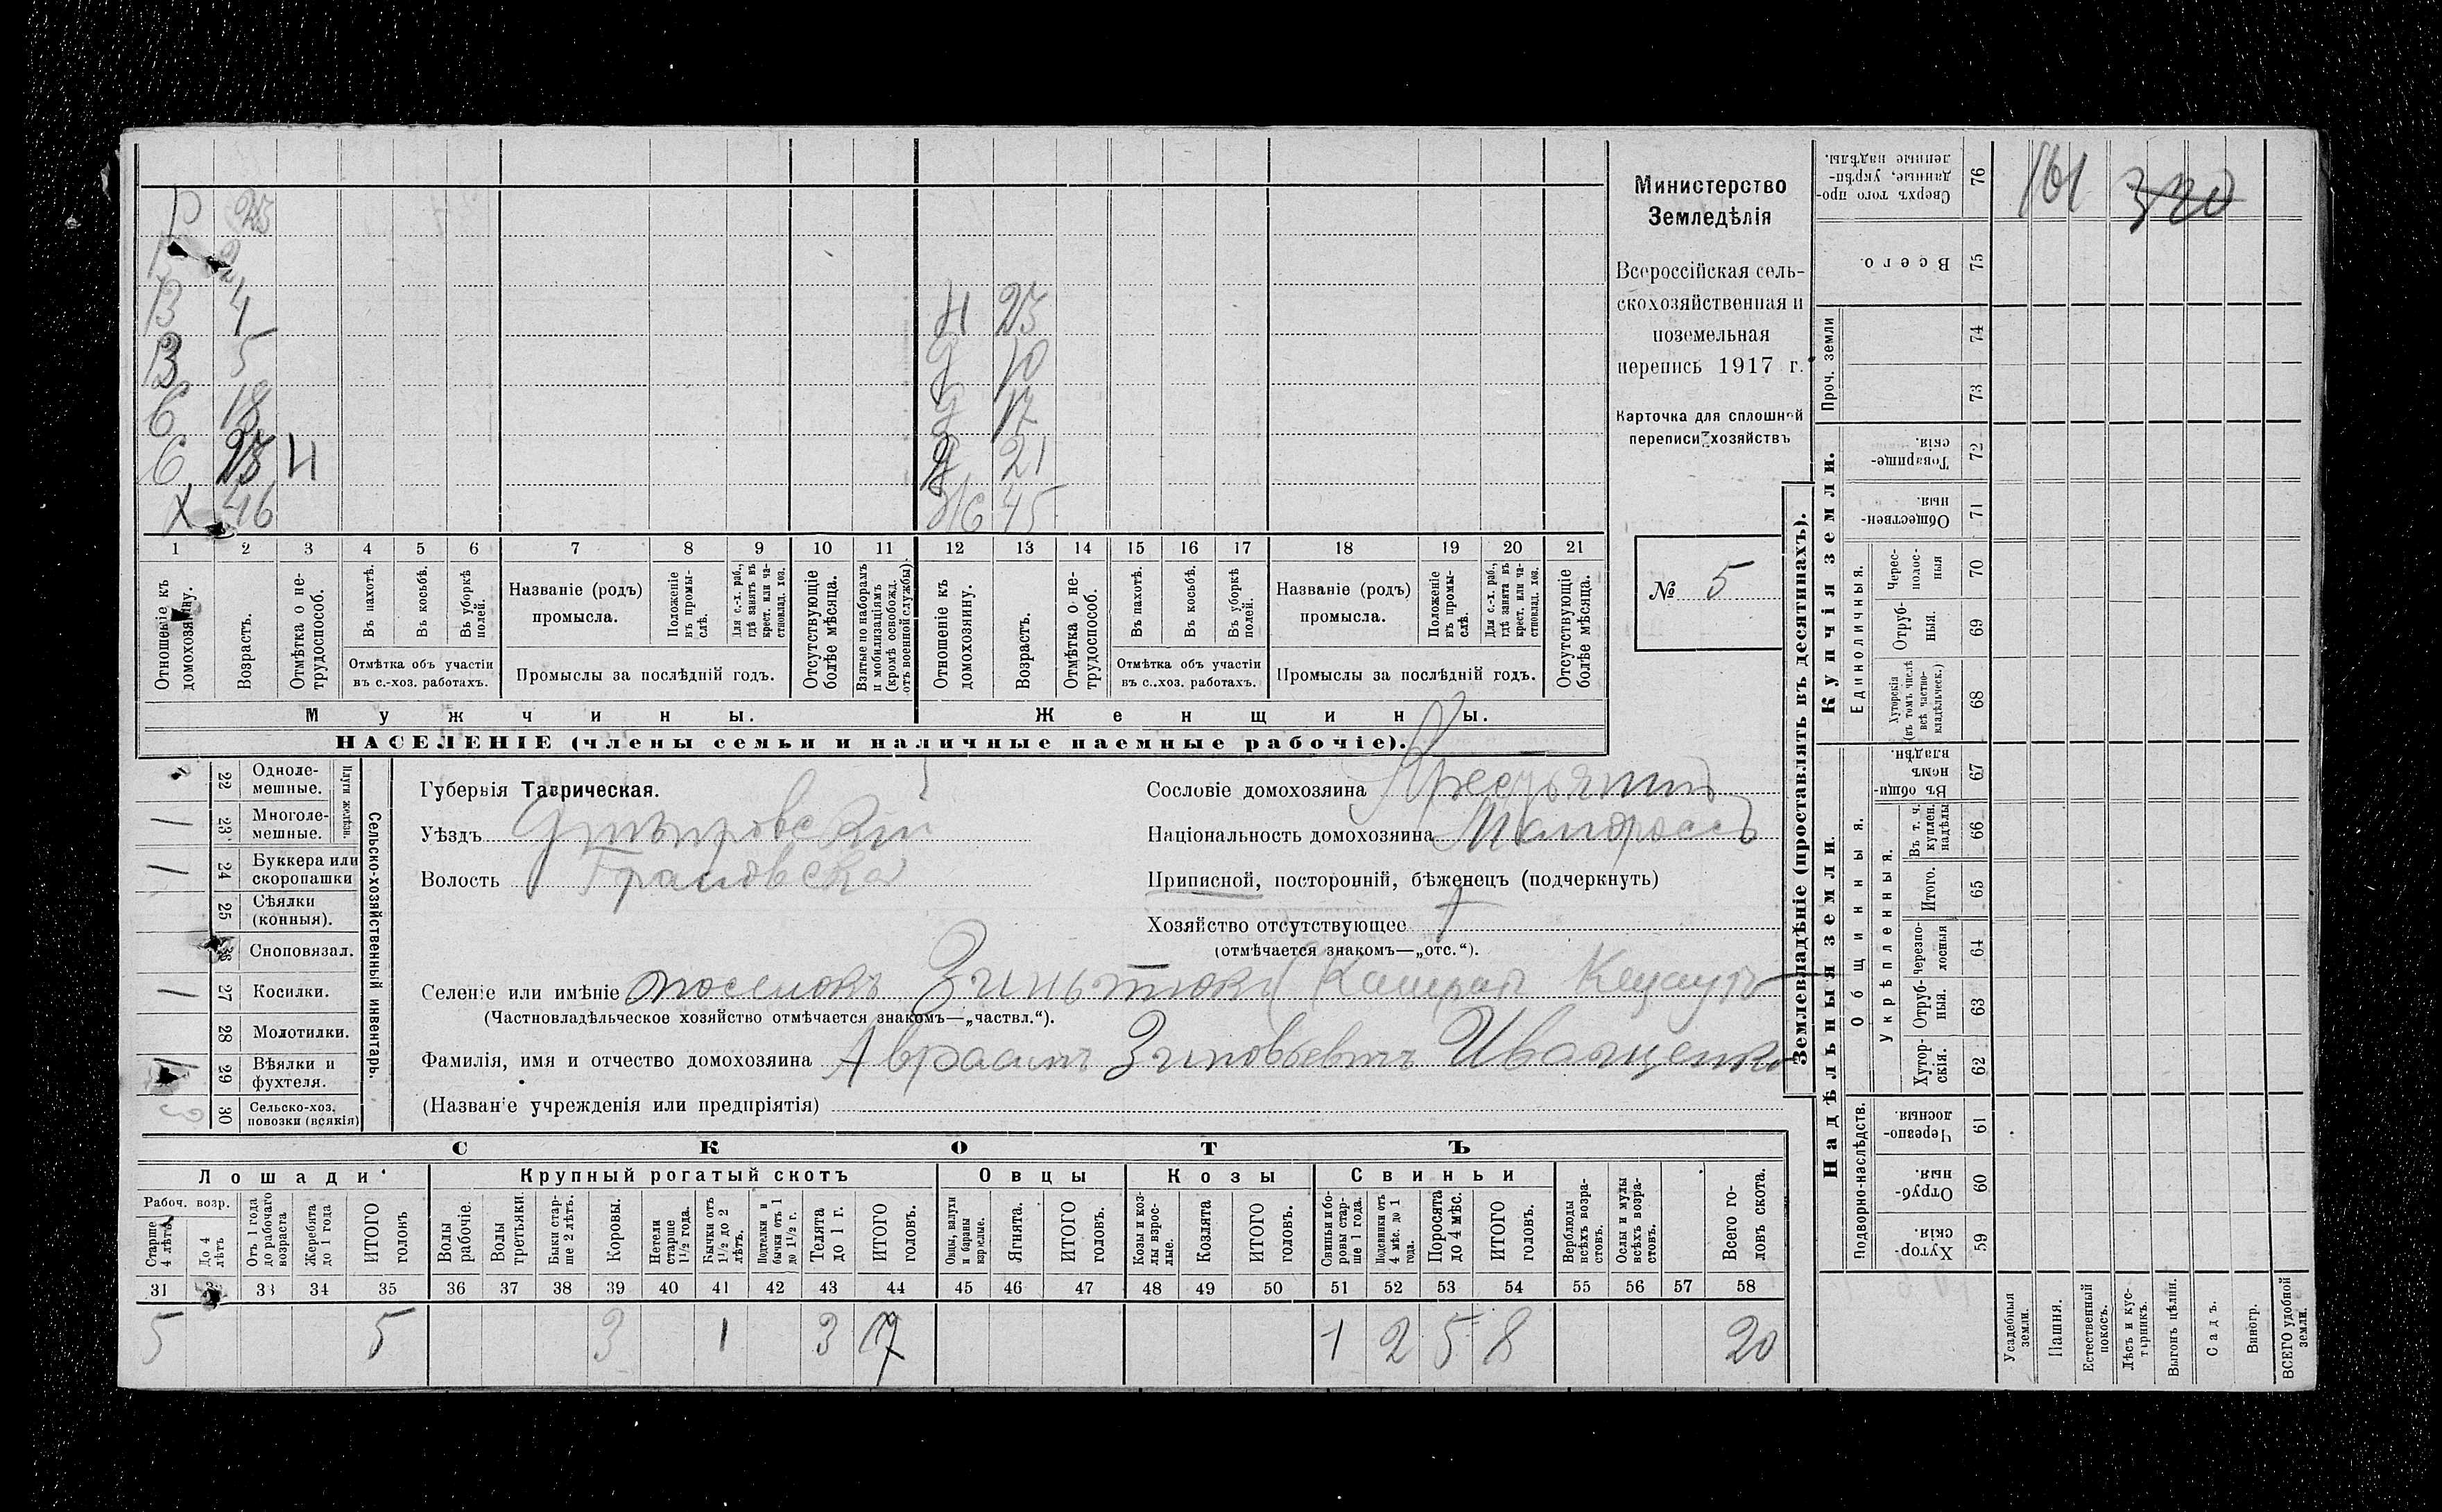 Р 25
Р 2
В 4
Н 25
В 5
д 10
С 18
д 17
С 25 Н
д 21
Х 46
ж 45
1 2 3 4 5 6 7 8 9 10 11 12 13 14 15 16 17 18 19 20 21
Отношеніе къ домохозяину.
Возрастъ.
Отмѣтка о не-
трудоспособ.
Въ пахотѣ.
Въ косьбѣ.
Въ уборкѣ полей.
Отмѣтка объ участіи
въ с.-хоз. работахъ.
Названіе (родъ)
промысла.
Положеніе въ промы-
слѣ.
Для с.-х. раб., гдѣ занятъ въ крест. или ча-
стновлад. хоз.
Промыслы за послѣдній годъ.
Отсутствующіе болѣе мѣсяца.
Взятые по наборамъ и мобилизаціямъ (кромѣ освобожд. отъ военной службы).
Отношеніе къ домохозяину.
Возрастъ.
Отмѣтка о не-
трудоспособ.
Въ пахотѣ.
Въ косьбѣ.
Въ уборкѣ полей.
Отмѣтка объ участіи
въ с..хоз. работахъ.
Названіе (родъ)
промысла.
Положеніе въ промы-
слѣ.
Для с.-х. раб., гдѣ занята въ крест. или ча-
стновлад. хоз.
Промыслы за послѣдній годъ.
Отсутствующіе болѣе мѣсяца.
Мужчины. Женщины.
НАСЕЛЕНІЕ (члены семьи и наличные наемные рабочіе).
Министерство
Земледѣлія
Всероссійская сель-
скохозяйственная и
поземельная
перепись 1917 г.
Карточка для сплошной
переписи хозяйствъ
№ 5
22 Одноле-
мешные.
23 Многоле-
мешные.
Плуги желѣзн.
24 Буккера или
скоропашки
25 Сѣялки
(конныя).
26 Сноповязал.
27 Косилки.
28 Молотилки.
29 Вѣялки и
фухтеля.
30 Сельско-хоз.
повозки (всякія)
Сельско-хозяйственный инвентарь.
Губернія Таврическая.
Уѣздъ Днѣпровскій
Волость
Сословіе домохозяина Крестьянинъ
Національность домохозяина Малороссъ
Приписной, посторонній, бѣженецъ (подчеркнуть)
Хозяйство отсутствующее
(отмѣчается знакомъ—„отс.“).
Селеніе или имѣніе поселокъ
(Частновладѣльческое хозяйство отмѣчается знакомъ—„частвл.“).
Фамилія, имя и отчество домохозяина Авраамъ Зиновьевичъ Иващенко
(Названіе учрежденія или предпріятія)
СКОТЪ
Лошади Крупный рогатый скотъ Овцы Козы Свиньи
Рабоч. возр.
Старше 4 лѣтъ
До 4 лѣтъ
Отъ 1 года до рабочаго возраста
Жеребята до 1 года
ИТОГО головъ
Волы рабочіе.
Волы третьяки.
Быки стар-
ше 2 лѣтъ.
Коровы.
Нетели старше 1 1/2 года.
Бычки отъ 1 1/2 до 2 лѣтъ.
Подтелки и бычки отъ 1 до 1 1/2 г.
Телята до 1 г.
ИТОГО головъ.
Овцы, валухи и бараны взрослые.
Ягнята.
ИТОГО головъ.
Козы и коз-
лы взрос-
лые.
Козлята
ИТОГО головъ.
Свиньи и бо-
ровы стар-
ше 1 года.
Подсвинки отъ 4 мѣс. до 1 года.
Поросята до 4 мѣс.
ИТОГО головъ.
Верблюды всѣхъ возра-
стовъ.
Ослы и мулы всѣхъ возра-
стовъ.
Всего го-
ловъ скота.
31 33 34 35 36 37 38 39 40 41 42 43 44 45 46 47 48 49 50 51 52 53 54 55 56 57 58
5 5 3 1 3 7 1 2 5 8 20
Землевладѣніе (проставлять въ десятинахъ).
161 320
Сверхъ того про-
данные, укрѣп-
ленные надѣлы. 76
Всего. 75
Проч. земли 74
73
Купчія земли.
Товарище-
скія. 72
Обществен-
ныя. 71
Единоличныя.
Черес-
полос-
ныя 70
Отруб-
ныя. 69
Хуторскія
(въ томъ числѣ
всѣ частно-
владѣльческ.) 68
Надѣльныя земли.
Общинныя.
Въ общи-
номъ
владѣн. 67
Укрѣпленныя.
Въ т. ч. куплен. надѣлы 66
Итого. 65
Черезпо-
лосныя 64
Отруб-
ныя. 63
Хутор-
скія. 62
Подворно-наслѣдств.
Черезпо-
лосныя. 61
Отруб-
ныя. 60
Хутор-
скія. 59
Усадебныя земли.
Пашня.
Естественный покосъ.
Лѣсъ и кус-
тарникъ.
Выгонъ цѣлин.
Садъ.
Виногр.
ВСЕГО удобной земли.